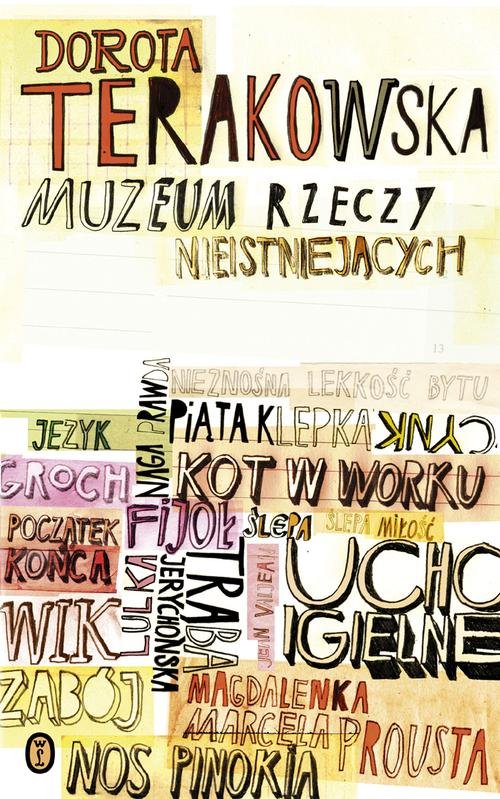 DOROTA
TERAKOWSKA
MUZEUM RZECZY
NIEISTNIEJĄCYCH
13
NIEZNOŚNA LEKKOŚĆ BYTU
PIĄTA KLEPKA
CYNK
JĘZYK
NAGA PRAWDA
GROCH
KOT W WORKU
POCZĄTEK
KOŃCA
FIJOŁ
ŚLEPA
ŚLEPA MIŁOŚĆ
LULKA
TRĄBA
JERYCHOŃSKA
JEAN VALJEAN
UCHO
IGIELNE
WIK
ZABÓJ
MAGDALENKA
MARCELA PROUSTA
NOS PINOKIA
WL